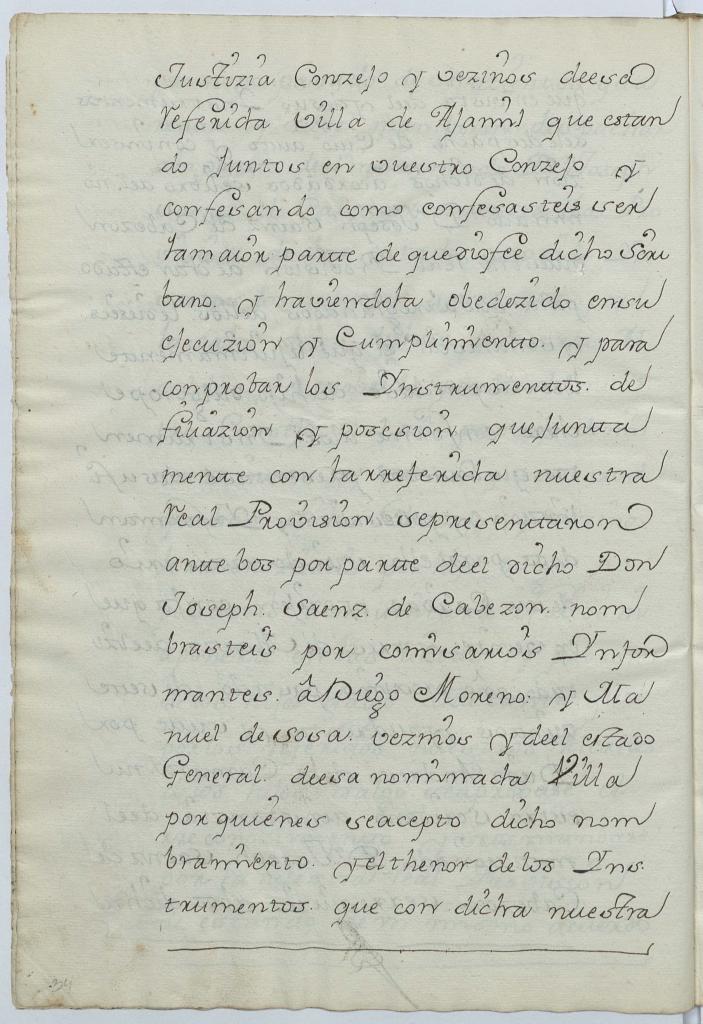 Justizia Conzejo y vezinos deesa
Referida villa de Ajamil que estan
do Juntos en vuestro Conzejo y
confesando como confesasteis ser
lamaior partte de quediofee dicho Scri
bano. y haviendola obedezido ensu
ejecuzion y Cumplimientto. y para
conprobar los Ynstrumenttos. de
filiazion y posesion queJuntta
mentte con larreferida nuestra
Real Provision sepresenttaron
antte bos por partte deel dicho Don
Joseph. Saenz. de Cabezon. nom
brasteis por comisarios Ynfor
mantes. â Diego Moreno: y Ma
nuel de sosa. vezinos y deel estado
General. deesa nominada Villa
por quienes seacepto dicho nom
bramiento. yelthenor de los Yns.
trumentos. que con dicha nuestra
34